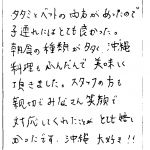 タタミとベットの両方があったので
子連れにはとても良かった。
朝食の種類が多く、沖縄
料理もふんだんで美味しく
頂きました。スタッフの方も
親切でみなさん笑顔で
対応してくれたことがとても嬉し
かったです。沖縄 大好き!!